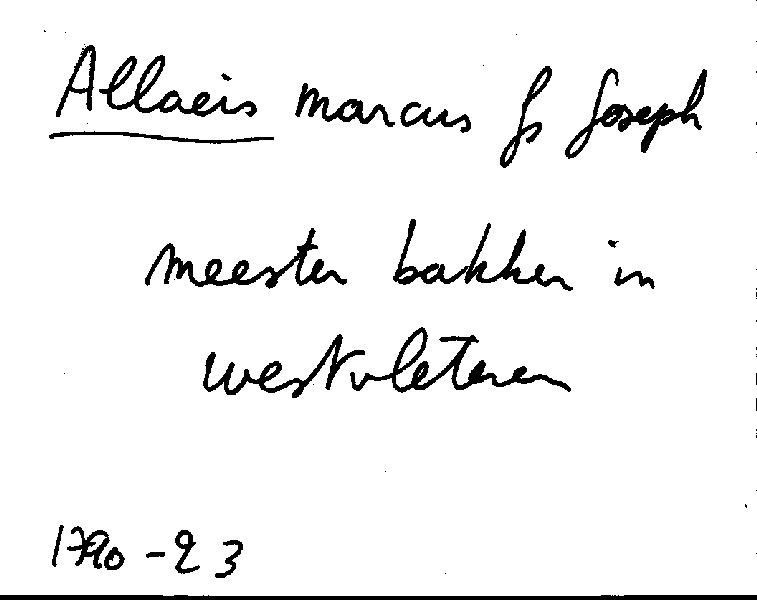 Allaeis marcus fs Joseph
meester bakker in
westvleteren
1790 - 23